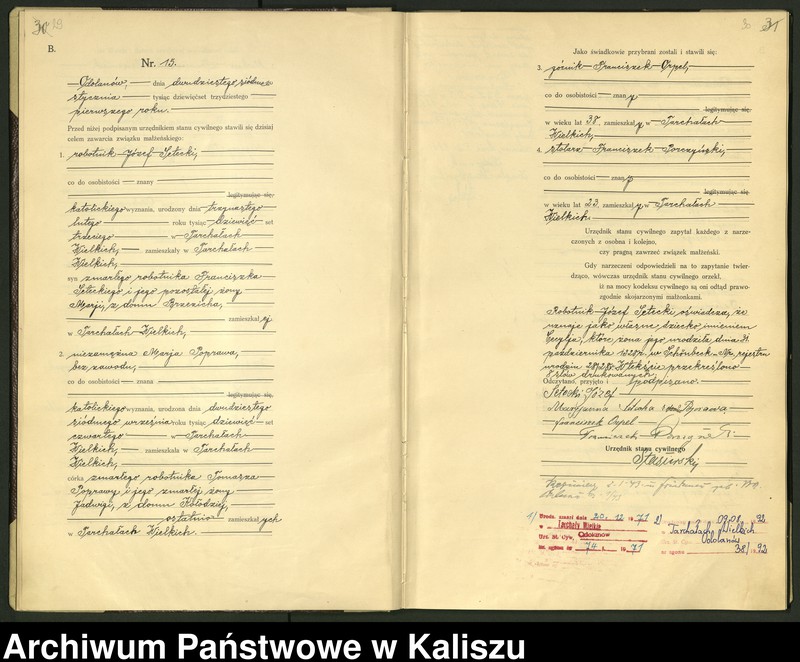 B.
Nr. 15.
Odolanów, dnia dwudziestego siódmego
stycznia tysiąc dziewięćset trzydziestego
pierwszego roku.
Przed niżej podpisanym urzędnikiem stanu cywilnego stawili się dzisiaj
celem zawarcia związku małżeńskiego:
1. robotnik Józef Setecki,
co do osobistości znany
legitymując się
katolickiego wyznania, urodzony dnia trzynastego
lutego roku tysiąc dziewięć set
trzeciego w Tarchałach
Wielkich, zamieszkały w Tarchałach
Wielkich,
syn zmarłego robotnika Franciszka
Seteckiego i jego pozostałej żony
Marji, z domu Brzezicha,
zamieszkałej
w Tarchałach Wielkich,
2. niezamężna Marja Poprawa,
bez zawodu,
co do osobistości znana
legitymując się
katolickiego wyznania, urodzona dnia dwudziestego
siódmego września roku tysiąc dziewięć set
czwartego w Tarchałach
Wielkich, zamieszkała w Tarchałach
Wielkich,
córka zmarłego robotnika Tomasza
Poprawy i jego zmarłej żony
Jadwigi, z domu Kołodziej,
ostatnio zamieszkałych
w Tarchałach Wielkich.
31
Jako świadkowie przybrani zostali i stawili się:
3. górnik Franciszek Orpel,
co do osobistości znany
legitymując się
w wieku lat 38, zamieszkały w Tarchałach
Wielkich,
4. stolarz Franciszek Porczyński,
co do osobistości znany
legitymując się
w wieku lat 23, zamieszkały w Tarchałach
Wielkich.
Urzędnik stanu cywilnego zapytał każdego z narze-
czonych z osobna i kolejno,
czy pragną zawrzeć związek małżeński.
Gdy narzeczeni odpowiedzieli na to zapytanie twier-
dząco, wówczas urzędnik stanu cywilnego orzekł,
iż na mocy kodeksu cywilnego są oni odtąd prawo-
zgodnie skojarzonymi małżonkami.
Robotnik Józef Setecki oświadcza, że
uznaje jako własne dziecko imieniem
Cecylja, które żona jego urodziła dnia 31.
października 1928r. w Schönbeck Nr. rejestru
urodzin W tekście przekreślono
8 słów drukowanych.
Odczytano, przyjęto i podpisano.
Setecki Józef
Maryjanna Setecka Poprawa
Franciszek Orpel
Urzędnik stanu cywilnego
Stasierski
1) Urodz. zmarł dnia 20. 12. 1971
w Tarchały Wielkie
Urz. St. Cyw. Odolanów
Nr. aktu zg. 74 1971
2) 09.01 92
Tarchałach Wielkich
Odolanów
38/ 92
Archiwum Państwowe w Kaliszu